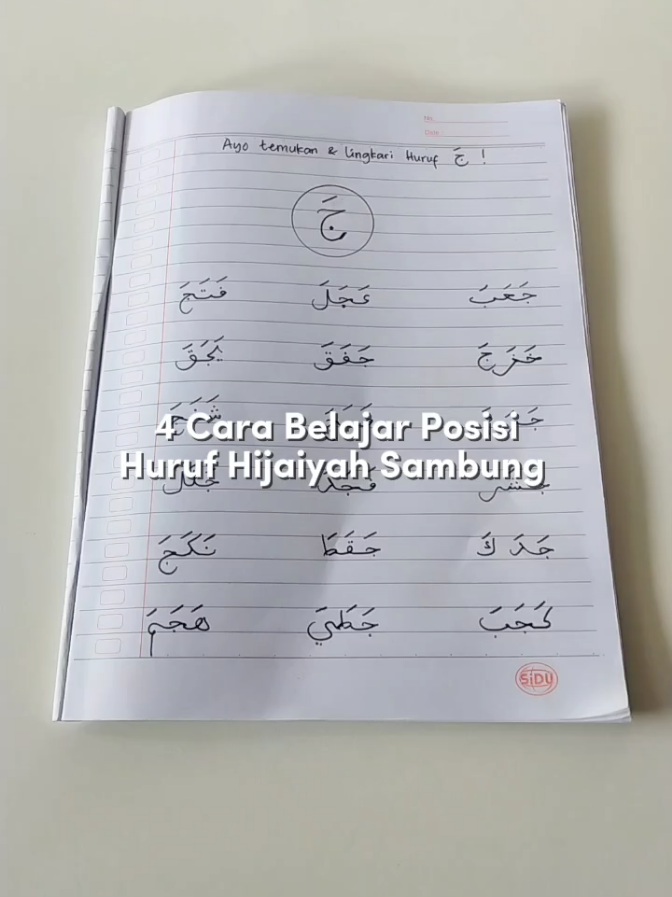 No.
Date.
Ayo temukan & lingkari Huruf جَ !
جَ
جَعَبَ عَجَلَ فَتَجَ
خَرَجَ جَفَقَ يَجَقَ
4 Cara Belajar Posisi
Huruf Hijaiyah Sambung
جَدَ كَ جَقَطَ نَكَجَ
كَجَبَ جَطَيَ هَجَمَ
SiDU